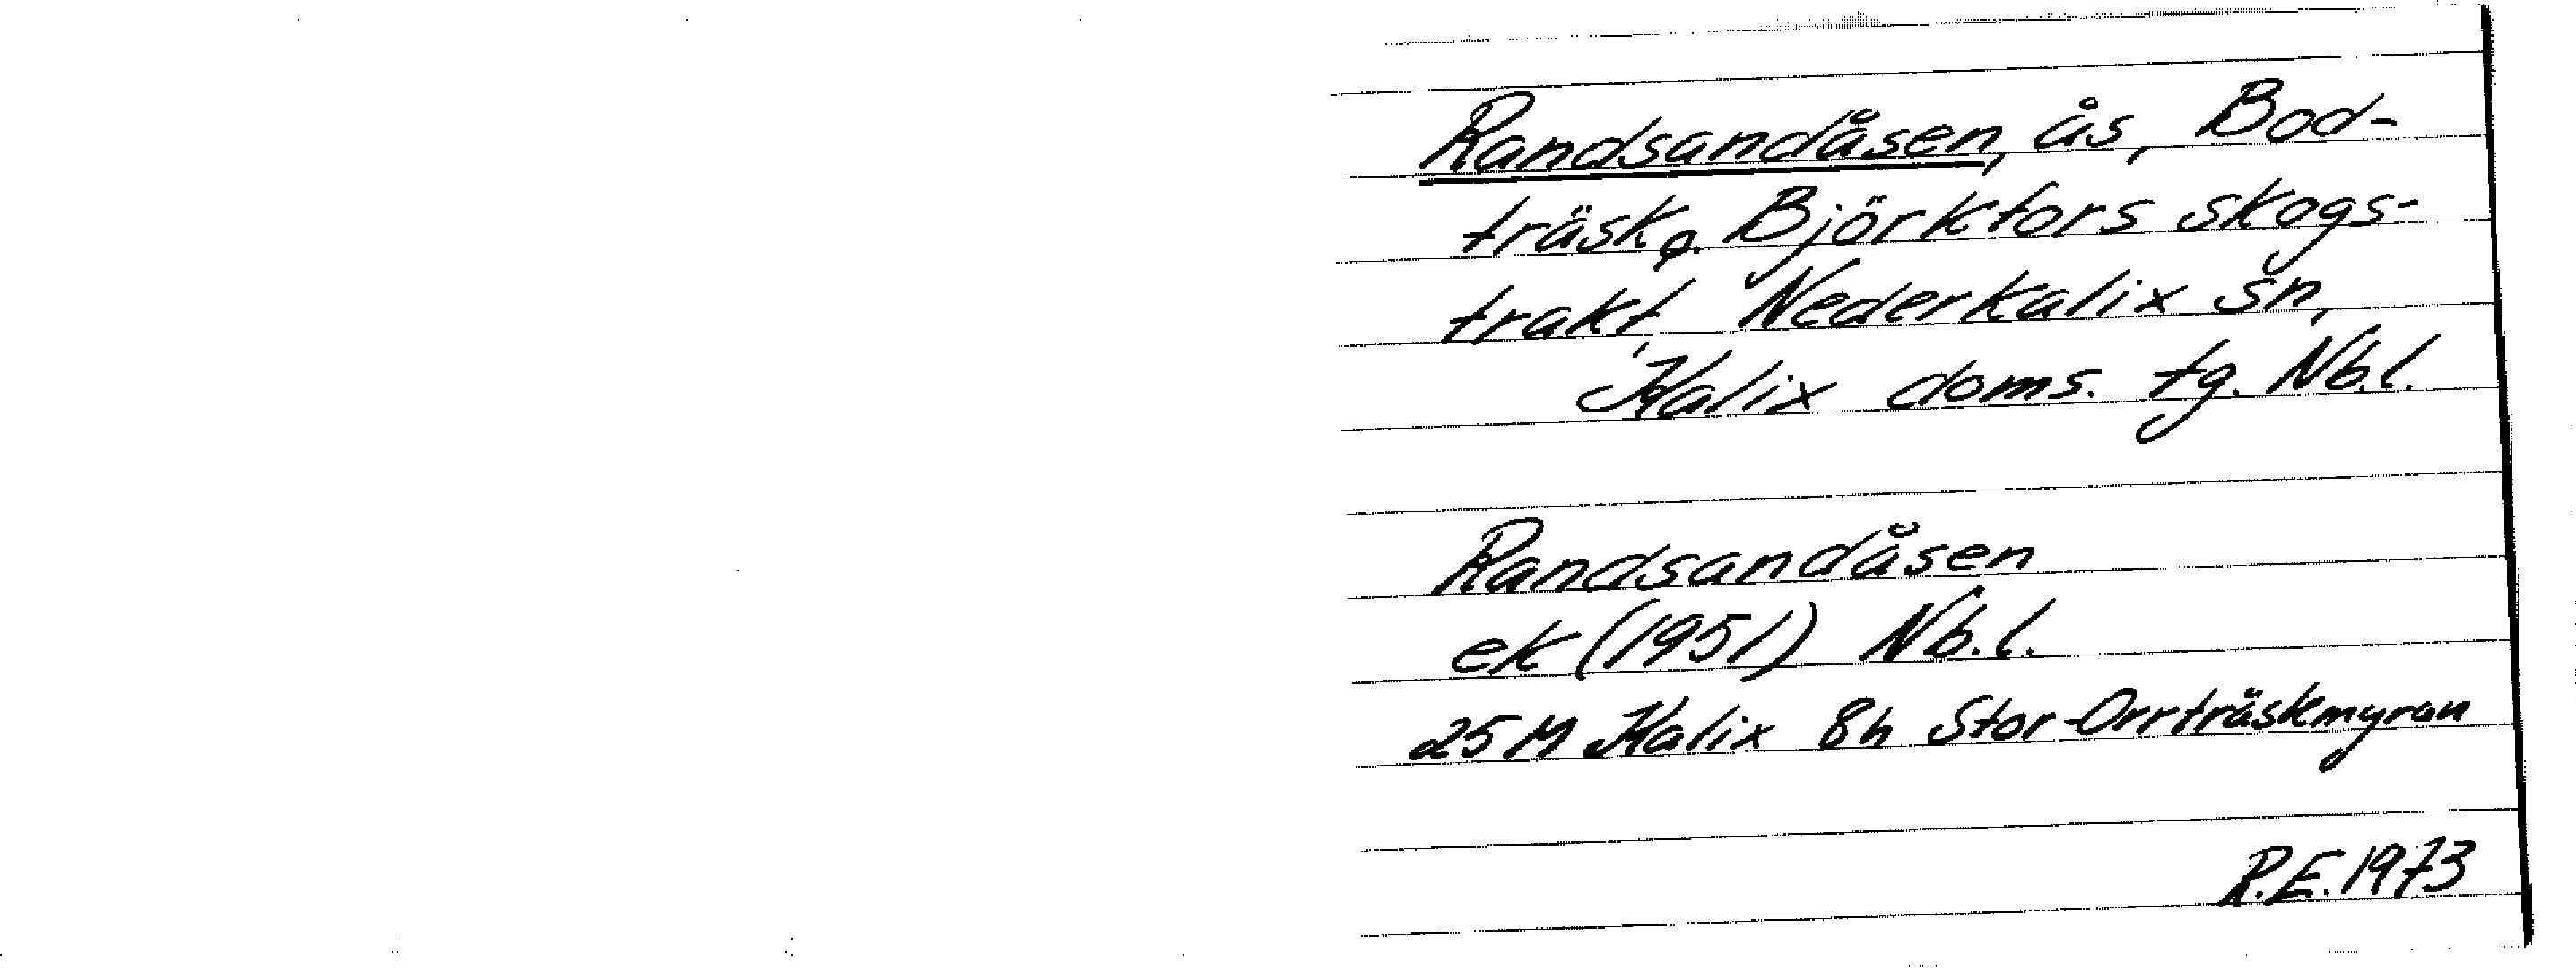 Randsandåsen, ås, Bod-
träsk o. Björkfors skogs-
trakt, Nederkalix sn,
Kalix doms. tg. Nb.l.
Randsandåsen
ek (1951) Nb.l.
25 M Kalix 8h Stor-Orrträskmyran
R.E. 1973